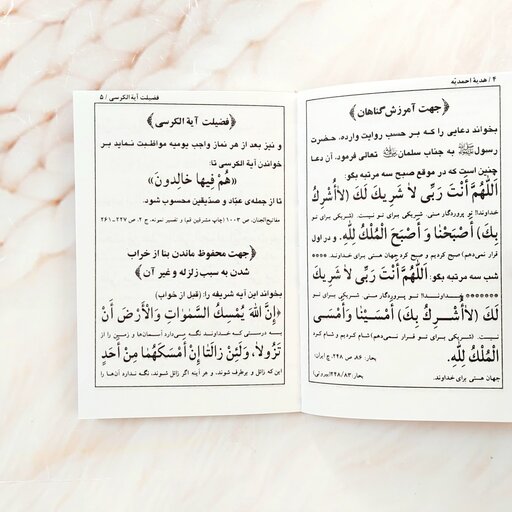 ۴ / هدیهٔ احمدیّه
﴿جهت آمرزش گناهان﴾
بخواند دعایی را که بر حسب روایت وارده، حضرت
رسول ﷺ به جناب سلمان تعالی فرمود. آن دعا
چنین است که در موقع صبح سه مرتبه بگو:
اَللّهُمَّ أَنْتَ رَبِّی لاٰ شَرِیكَ لَكَ (لاٰ أُشْرِكُ
خداوندا! تو پروردگار منی. شریکی برای تو نیست. (شریکی برای تو
بِكَ) أَصْبَحْنٰا وَ أَصْبَحَ الْمُلْكُ لِلّٰهِ. و در اول
قرار نمی‌دهم) صبح کردیم و صبح کرد جهان هستی برای خداوند.
شب سه مرتبه بگو: اَللّهُمَّ أَنْتَ رَبِّی لاٰ شَرِیكَ
خداوندا! تو پروردگار منی شریکی برای تو
لَكَ (لاٰ أُشْرِكُ بِكَ) أَمْسَیْنٰا وَأَمْسَی
نیست. (شریکی برای تو قرار نمی‌دهم) شام کردیم و شام کرد
الْمُلْكُ لِلّٰهِ.
بحار: ۸۶، ص ۲۴۸، چ ایران؛
بحار: ۲۴۸/۸۳(بیروتی)
جهان هستی برای خداوند.
فضیلت آیة الکرسی / ۵
﴿فضیلت آیة الکرسی﴾
و نیز بعد از هر نماز واجب یومیه مواظبت نماید بر
خواندن آیة الکرسی تا:
«هُمْ فِیهٰا خٰالِدُونَ»
تا از جمله‌ی عبّاد و صدّیقین محسوب شود.
مفاتیح‌الجنان، ص ۱۰۰۳ (چاپ مشرقین قم) و تفسیر نمونه، ج ۲، ص ۲۴۷ -۲۶۱
﴿جهت محفوظ ماندن بنا از خراب
شدن به سبب زلزله و غیر آن﴾
بخواند این آیه شریفه را: (قبل از خواب)
﴿إِنَّ اللّٰهَ یُمْسِكُ السَّمٰوٰاتِ وَالْأَرْضَ أَنْ
به درستی که خداوند نگه می‌دارد آسمان‌ها و زمین را از
تَزُولاٰ، وَلَئِنْ زٰالَتٰا إِنْ أَمْسَكَهُمٰا مِنْ أَحَدٍ
این که زائل و برطرف شوند، و هر آینه اگر زائل شوند، نگه ندارد آن‌ها را